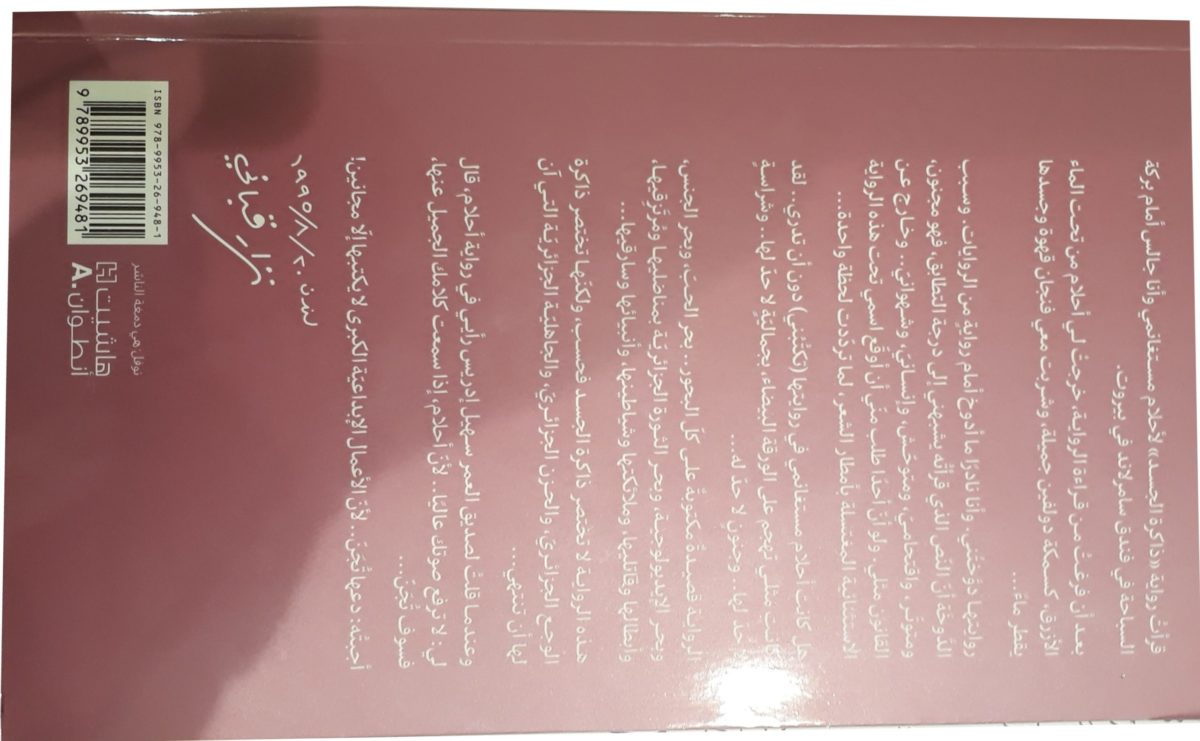 قرأتُ رواية «ذاكرة الجسد» لأحلام مستغانمي وأنا جالس أمام بركة
السباحة في فندق سامرلاند في بيروت.
بعد أن فرغتُ من قراءة الرواية، خرجتْ لي أحلام من تحت الماء
الأزرق، كسمكة دولفين جميلة، وشربت معي فنجان قهوة وجسدها
يقطر ماءً...
روايتها دوّختني. وأنا نادرًا ما أدوخ أمام رواية من الروايات، وسبب
الدّوخة أنّ النّص الذي قرأتُه يشبهني إلى درجة التطابق، فهو مجنون،
ومتوتّر، واقتحاميّ، ومتوحّش، وإنسانيّ، وشهوانيّ.. وخارج عن
القانون مثلي. ولو أنّ أحدًا طلب منّي أن أوقّع اسمي تحت هذه الرواية
الاستثنائية المغتسلة بأمطار الشعر، لما تردّدت لحظة واحدة...
هل كانت أحلام مستغانمي في روايتها (تكتُبُني) دون أن تدري.. لقد
كانت مثلي تهجم على الورقة البيضاء، بجماليّةٍ لا حدّ لها.. وشراسةٍ
لا حدّ لها.. وجنونٍ لا حدّ له...
الرواية قصيدةٌ مكتوبةٌ على كلّ البحور.. بحر الحبّ، وبحر الجنس،
وبحر الإيديولوجية، وبحر الثورة الجزائريّة بمناضليها ومُرتزقيها،
وأبطالها وقاتليها، وملائكتها وشياطينها، وأنبيائها وسارقيها...
هذه الرواية لا تختصر ذاكرة الجسد فحسب، ولكنّها تختصر ذاكرة
الوجع الجزائريّ، والحزن الجزائريّ، والجاهليّة الجزائريّة التي آن
لها أن تنتهي...
وعندما قلتُ لصديق العمر سهيل إدريس رأيي في رواية أحلام، قال
لي: لا ترفع صوتك عاليًا.. لأنّ أحلام، إذا سمعت كلامك الجميل عنها،
فسوف تُجَنّ...
أجبتُه: دعها تُجَنّ.. لأنّ الأعمال الإبداعيّة الكبرى لا يكتبها إلّا مجانين!
لندن ٢٠/٨/١٩٩٥
نزار قباني
ISBN 978-9953-26-948-1
9 789953 269481
نوفل هي دمغة الناشر
هاشيت
أنطوان A.